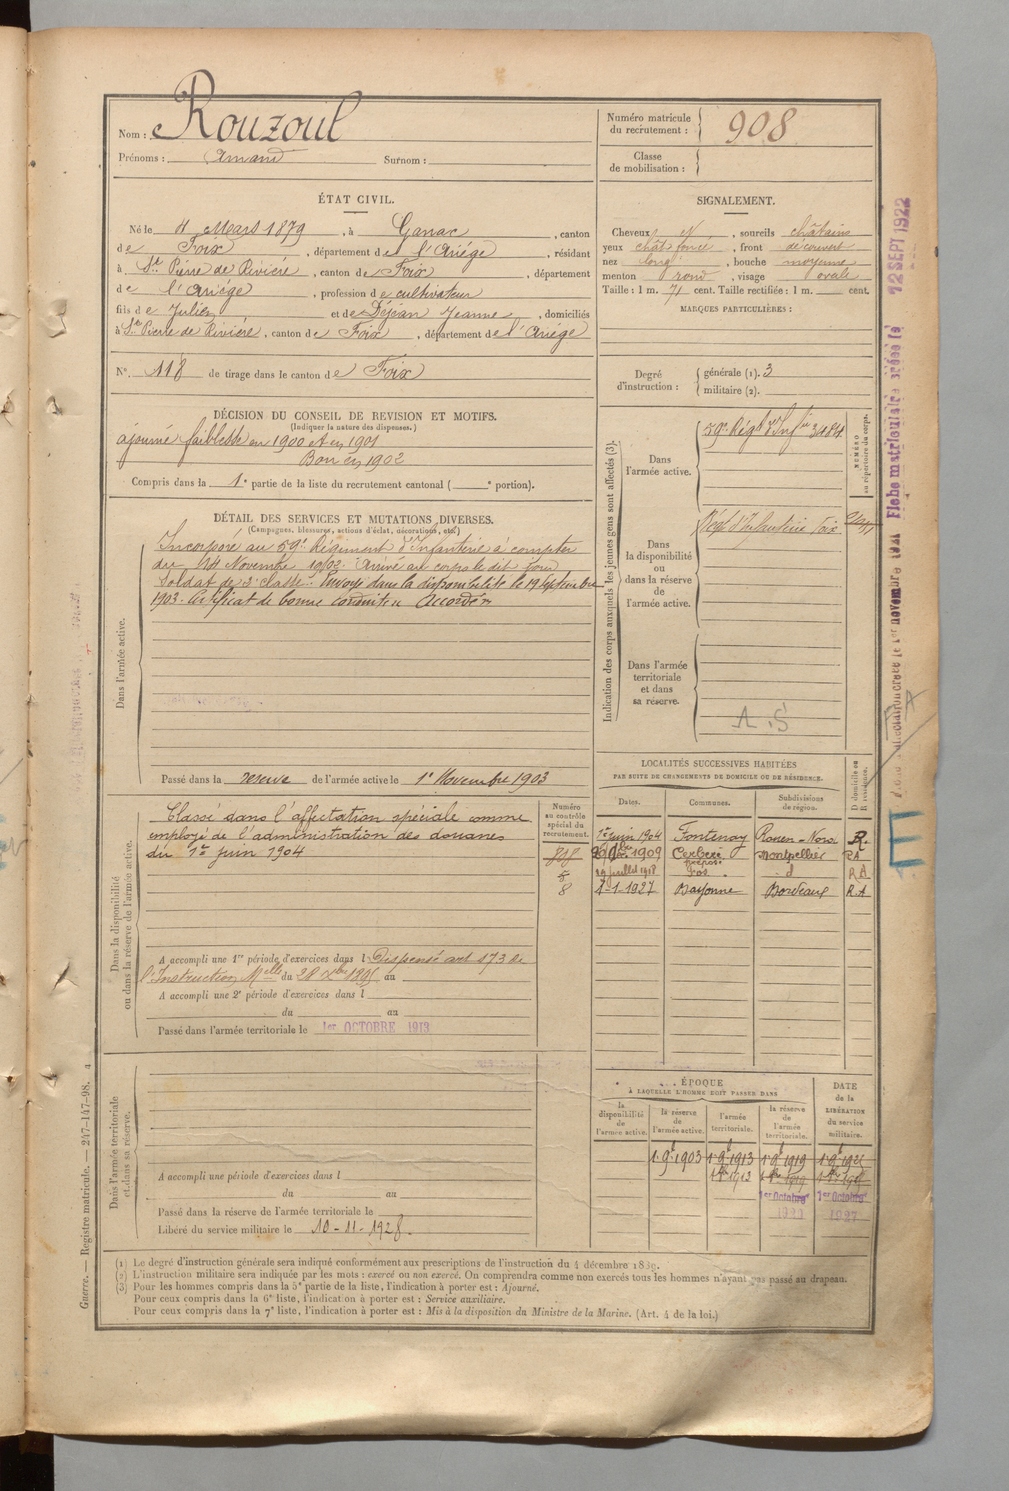 Nom : Rouzoul
Prénoms : Amand Surnom :
Numéro matricule du recrutement : 908
Classe de mobilisation :
ÉTAT CIVIL.
Né le 11 Mars 1879, à Ganac, canton
de Foix, département de l'Ariége, résidant
à St Pierre de Rivière, canton de Foix, département
de l'Ariége, profession de cultivateur
fils de Julien et de Déjean Jeanne, domiciliés
à St Pierre de Rivière, canton de Foix, département de l'Ariége
N° 118 de tirage dans le canton de Foix
SIGNALEMENT.
Cheveux N, sourcils châtains
yeux chât foncé, front découvert
nez long, bouche moyenne
menton rond, visage ovale
Taille : 1 m. 71 cent. Taille rectifiée : 1 m. cent.
MARQUES PARTICULIÈRES :
Degré d'instruction : générale (1). 3
militaire (2).
DÉCISION DU CONSEIL DE REVISION ET MOTIFS.
(Indiquer la nature des dispenses.)
ajourné faiblesse en 1900 et en 1901
Bon en 1902
Compris dans la 1e partie de la liste du recrutement cantonal ( e portion).
DÉTAIL DES SERVICES ET MUTATIONS DIVERSES.
(Campagnes, blessures, actions d'éclat, décorations, etc.)
Incorporé au 59e Régiment d'Infanterie à compter
du 14 Novembre 1902. Arrivé au corps le dit jour
Soldat de 2e classe. Envoyé dans la disponibilité le 19 Septembre
1903. Certificat de bonne conduite Accordé
Dans l'armée active.
Passé dans la réserve de l'armée active le 1er Novembre 1903
Indication des corps auxquels les jeunes gens sont affectés (3).
NUMÉRO au répertoire du corps.
Dans l'armée active.
59e Régt d'Infie
Dans la disponibilité ou dans la réserve de l'armée active.
Régt d'Infanterie Foix
Dans l'armée territoriale et dans sa réserve.
A.S
LOCALITÉS SUCCESSIVES HABITÉES
PAR SUITE DE CHANGEMENTS DE DOMICILE OU DE RÉSIDENCE.
Dates. Communes. Subdivisions de région. D domicile ou R résidence.
1er juin 1904 Fontenay Rouen - Nord R.
1909 Cerbère Montpellier RA
29 juillet 1918 Fos d RA
1-1-1927 Bayonne Bordeaux R.A
Dans la disponibilité ou dans la réserve de l'armée active.
Numéro au contrôle spécial du recrutement.
Classé dans l'affectation spéciale comme
employé de l'administration des douanes
du 1er juin 1904
8
A accompli une 1re période d'exercices dans l Dispensé art 173 de
l'Instruction Melle du 28 Xbre 1895 au
A accompli une 2e période d'exercices dans l
du au
Passé dans l'armée territoriale le 1er OCTOBRE 1913
Dans l'armée territoriale et dans sa réserve.
A accompli une période d'exercices dans l
du au
Passé dans la réserve de l'armée territoriale le
Libéré du service militaire le 10-11-1928.
ÉPOQUE
À LAQUELLE L'HOMME DOIT PASSER DANS
la disponibilité de l'armée active. la réserve de l'armée active. l'armée territoriale. la réserve de l'armée territoriale. DATE de la LIBÉRATION du service militaire.
1 9t 1903 1 9t 1913 1 9t 1919
1er Octobre 1er Octobre
1927
(1) Le degré d'instruction générale sera indiqué conformément aux prescriptions de l'instruction du 4 décembre 1889.
(2) L'instruction militaire sera indiquée par les mots : exercé ou non exercé. On comprendra comme non exercés tous les hommes n'ayant pas passé au drapeau.
(3) Pour les hommes compris dans la 5e partie de la liste, l'indication à porter est : Ajourné.
Pour ceux compris dans la 6e liste, l'indication à porter est : Service auxiliaire.
Pour ceux compris dans la 7e liste, l'indication à porter est : Mis à la disposition du Ministre de la Marine. (Art. 4 de la loi.)
Guerre. — Registre matricule. — 247-147-98. 4
Fiche matriculaire créée le 12 SEPT 1922